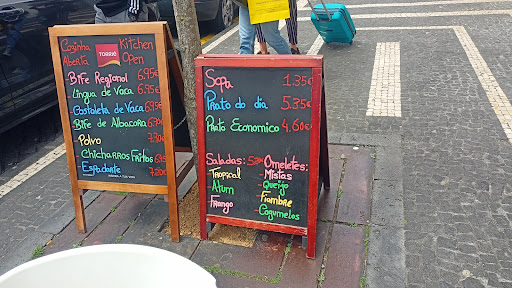 Cozinha
Aberta
TORRIÉ
Kitchen
Open
Bife Regional 6.95€
Lingua de Vaca 6.95€
Costoleta de Vaca 6.95€
Bife de Albacora
Polvo
Chicharros Fritos
Espadarte 7.20€
Sopa 1.35€
Prato do dia 5.35€
Prato Economico 4.60€
Saladas:
-Tropical
-Atum
-Frango
Omeletes:
-Mistas
-Queijo
-Fiambre
-Cogumelos